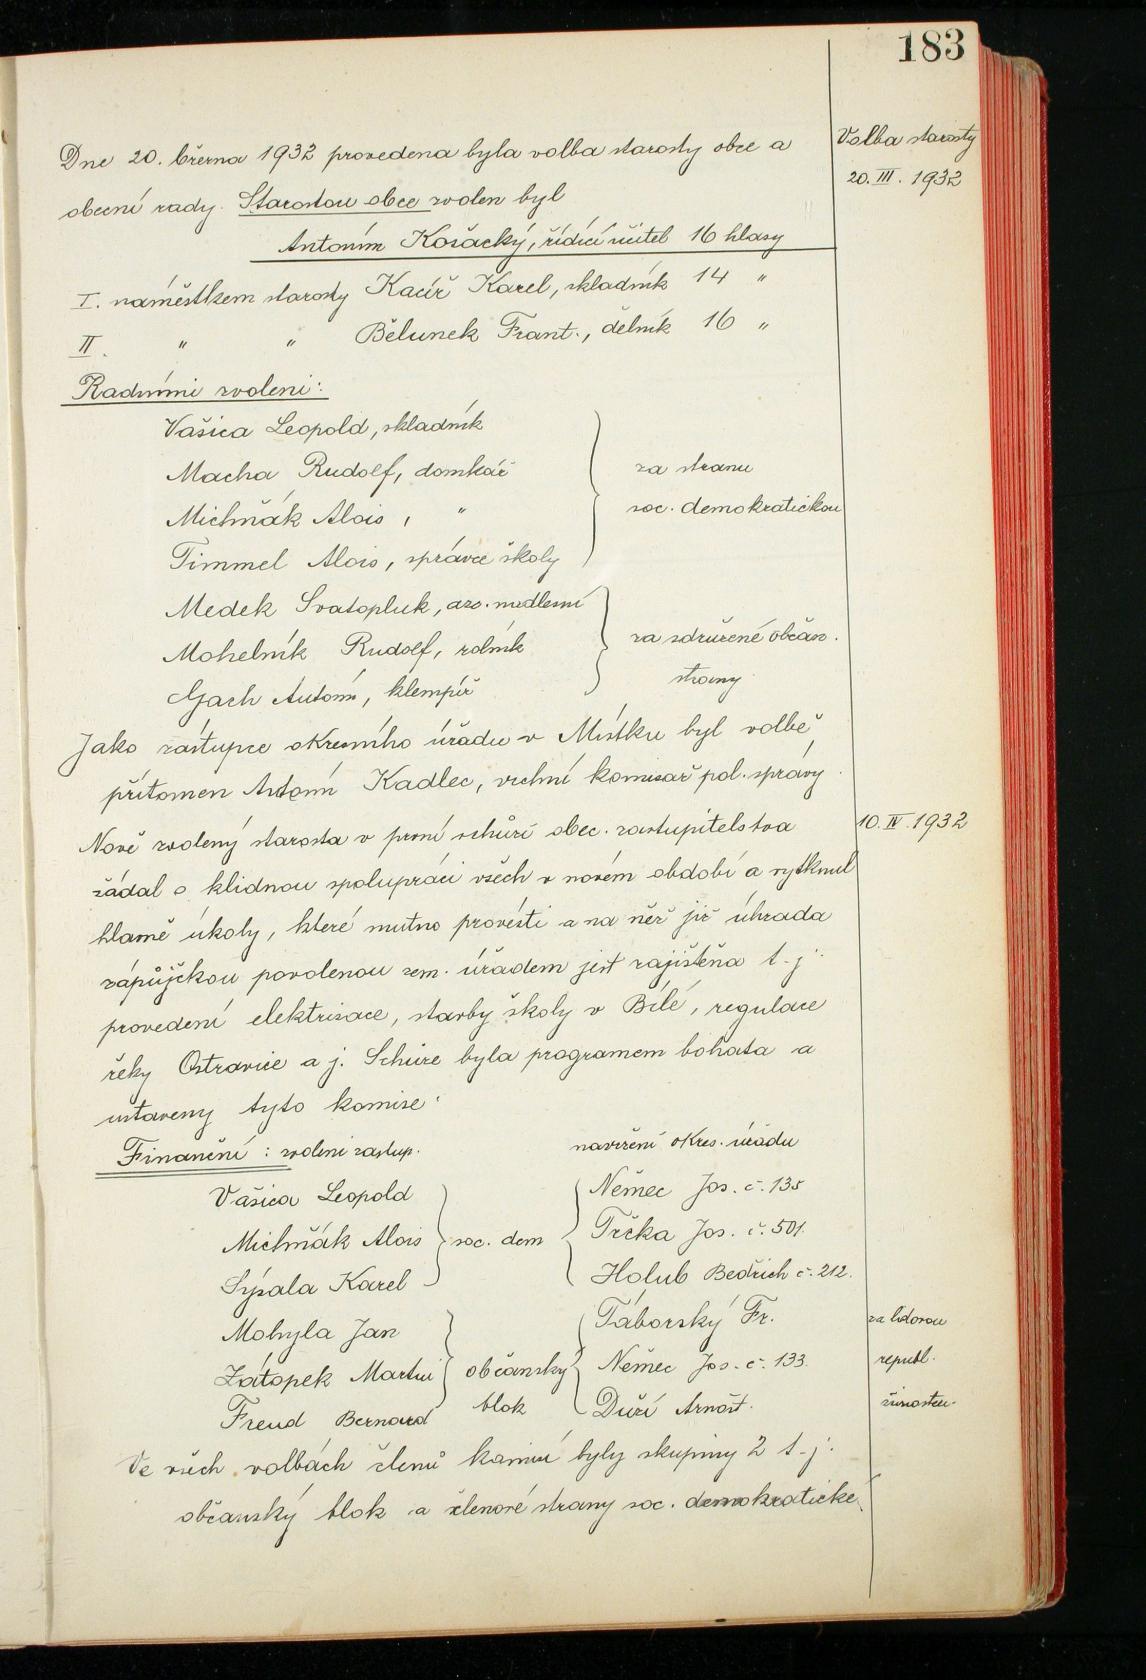 183
Dne 20. března 1932 provedena byla volba starosty obce a
Volba starosty
obecní rady. Starostou obce zvolen byl
20. III. 1932
Antonín Kozácký, řídící učitel 16 hlasy
I. náměstkem starosty Kacíř Karel, skladník 14 "
II. " " Bělunek Frant., dělník 16 "
Radními zvoleni:
Vašica Leopold, skladník
Macha Rudolf, domkář
za stranu
Michňák Alois, "
soc. demokratickou
Timmel Alois, správce školy
Medek Svatopluk,
Mohelník Rudolf, rolník
za sdružené občan.
Gach Antonín, klempíř
strany
Jako zástupce okresního úřadu v Místku byl volbě
přítomen Antonín Kadlec, vrchní komisař pol. správy.
Nově zvolený starosta v první schůzi obec. zastupitelstva
10. IV. 1932
žádal o klidnou spolupráci všech v novém období a vytknul
hlavně úkoly, které nutno provésti a na něž již úhrada
zápůjčkou povolenou zem. úřadem jest zajištěna t. j.
provedení elektrisace, stavby školy v Bílé, regulace
řeky Ostravice a j. Schůze byla programem bohata a
ustaveny tyto komise:
Finanční: zvoleni zastup.
navržení okres. úřadu
Vašica Leopold
Němec Jos. č. 135
Michňák Alois soc. dem
Trčka Jos. č. 501.
Sýsala Karel
Holub Bedřich č. 212.
Mohyla Jan
Táborský Fr.
za lidovou
Zátopek Martin občanský
Němec Jos. č. 133.
republ.
Freud Bernard blok
Duží Arnošt.
živnosten.
Ve všech volbách členů komisí byly skupiny 2 t. j.
občanský blok a členové strany soc. demokratické.